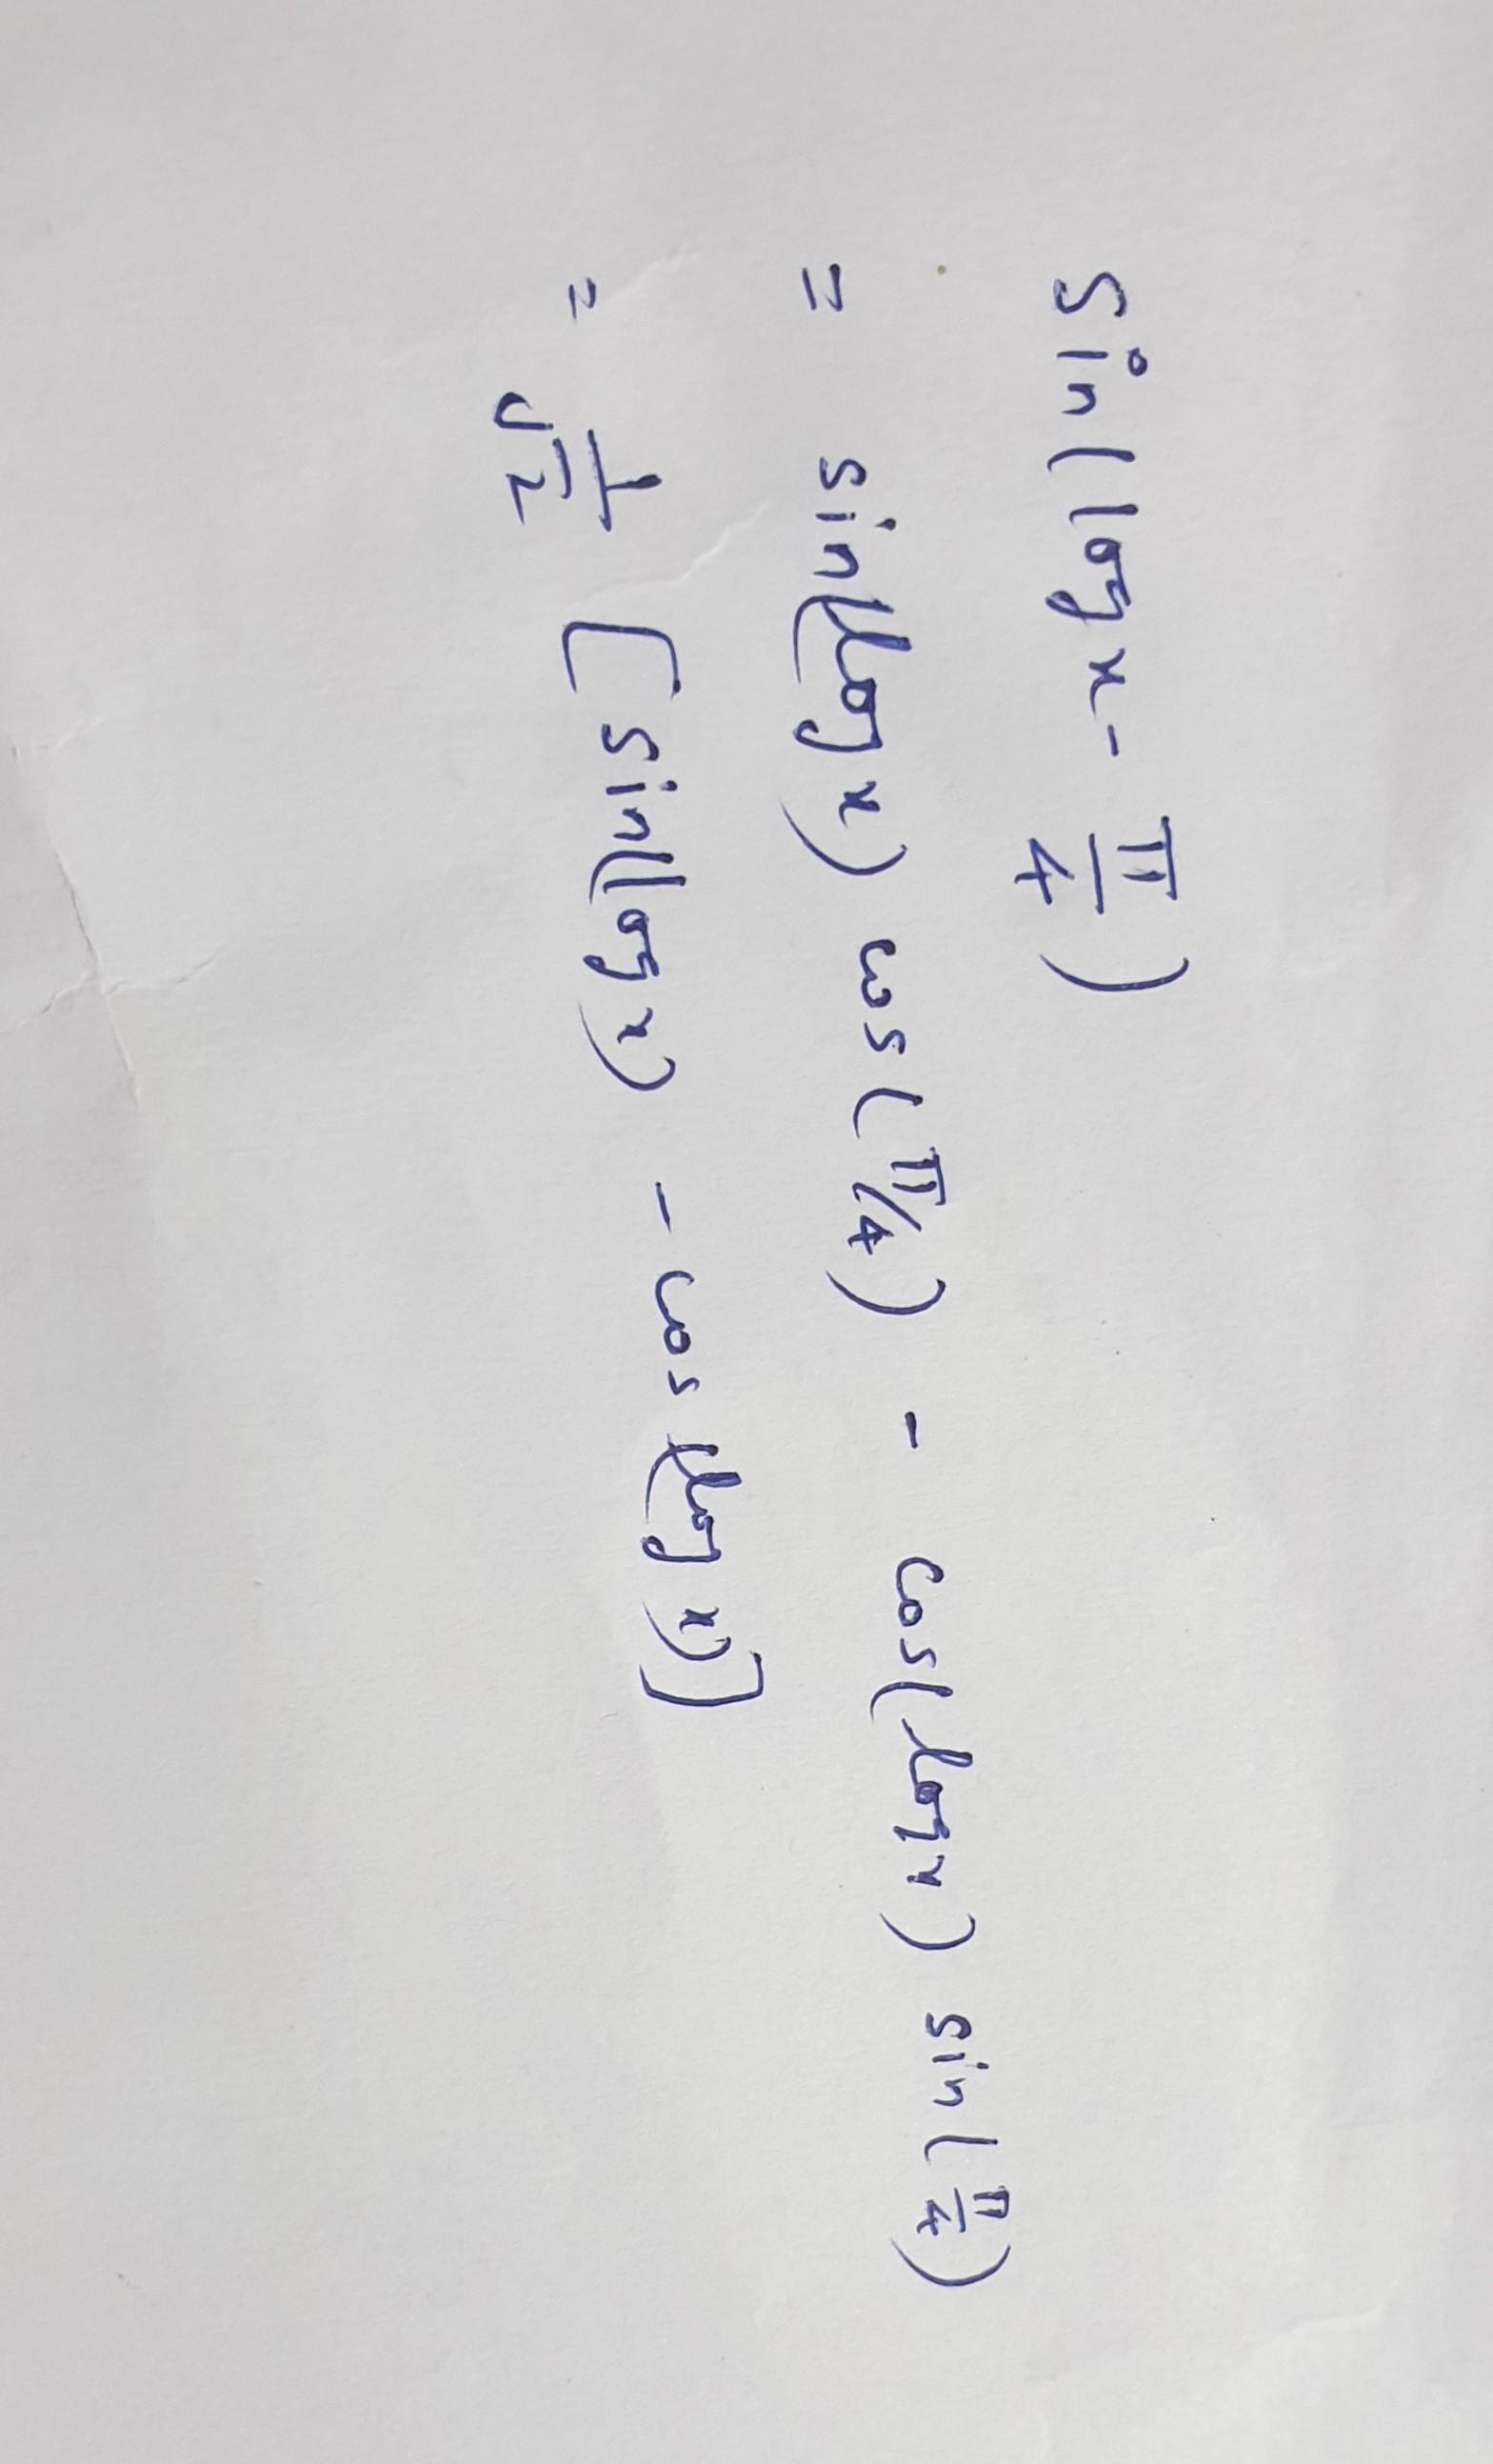 sin(log x - π/4)
= sin(log x) cos(π/4) - cos(log x) sin(π/4)
= 1/√2 [sin(log x) - cos(log x)]